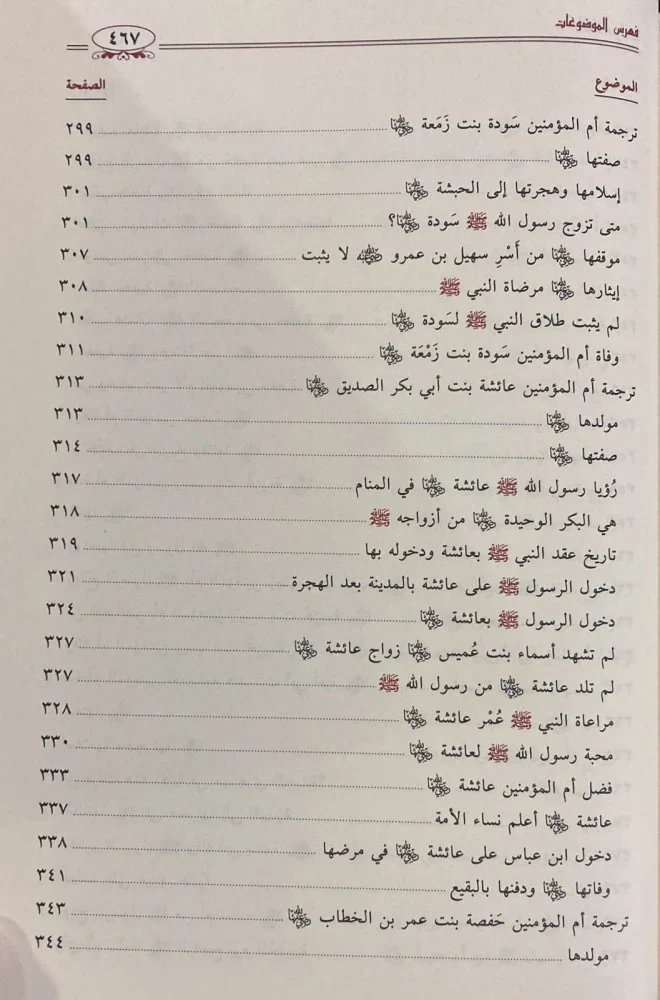 فهرس الموضوعات ٤٦٧
الموضوع الصفحة
ترجمة أم المؤمنين سَودة بنت زَمَعة رضي الله عنها ٢٩٩
صفتها رضي الله عنها ٢٩٩
إسلامها وهجرتها إلى الحبشة رضي الله عنها ٣٠١
متى تزوج رسول الله ﷺ سَودة رضي الله عنها؟ ٣٠١
موقفها رضي الله عنها من أَسْرِ سهيل بن عمرو رضي الله عنه لا يثبت ٣٠٧
إيثارها رضي الله عنها مرضاة النبي ﷺ ٣٠٨
لم يثبت طلاق النبي ﷺ لسَودة رضي الله عنها ٣١٠
وفاة أم المؤمنين سَودة بنت زَمْعَة رضي الله عنها ٣١١
ترجمة أم المؤمنين عائشة بنت أبي بكر الصديق رضي الله عنها ٣١٣
مولدها رضي الله عنها ٣١٣
صفتها رضي الله عنها ٣١٤
رُؤيا رسول الله ﷺ عائشة رضي الله عنها في المنام ٣١٧
هي البكر الوحيدة رضي الله عنها من أزواجه ﷺ ٣١٨
تاريخ عقد النبي ﷺ بعائشة ودخوله بها ٣١٩
دخول الرسول ﷺ على عائشة بالمدينة بعد الهجرة ٣٢١
دخول الرسول ﷺ بعائشة رضي الله عنها ٣٢٤
لم تشهد أسماء بنت عُميس رضي الله عنها زواج عائشة رضي الله عنها ٣٢٧
لم تلد عائشة رضي الله عنها من رسول الله ﷺ ٣٢٧
مراعاة النبي ﷺ عُمْر عائشة رضي الله عنها ٣٢٨
محبة رسول الله ﷺ لعائشة رضي الله عنها ٣٣٠
فضل أم المؤمنين عائشة رضي الله عنها ٣٣٣
عائشة رضي الله عنها أعلم نساء الأمة ٣٣٧
دخول ابن عباس على عائشة رضي الله عنها في مرضها ٣٣٨
وفاتها رضي الله عنها ودفنها بالبقيع ٣٤١
ترجمة أم المؤمنين حَفصة بنت عمر بن الخطاب رضي الله عنها ٣٤٣
مولدها ٣٤٤